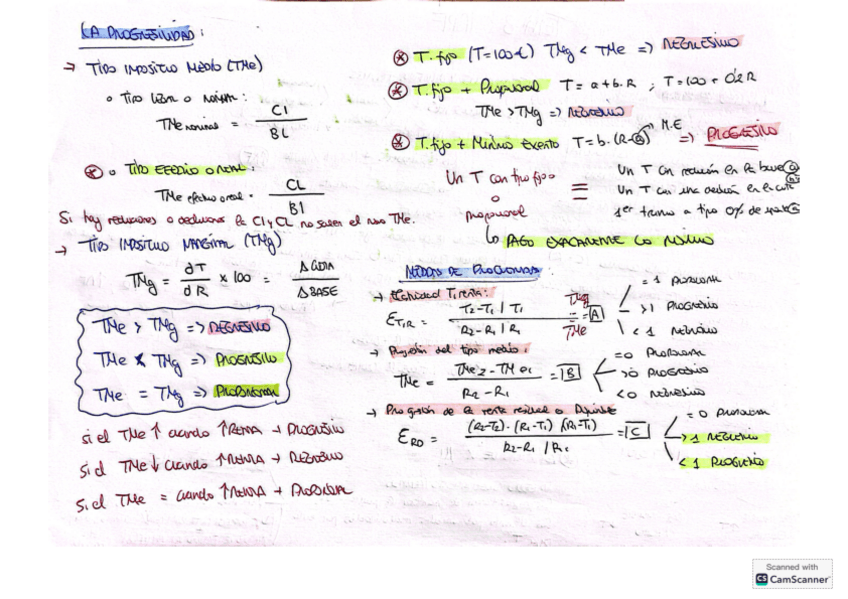 LA PROGRESIVIDAD:
→ TIPO IMPOSITIVO MEDIO (TMe)
o TIPO LEGAL O NOMINAL:
TMe nominal = CI / BL
* o TIPO EFECTIVO O REAL:
TMe efectivo o real = CL / BI
Si hay reducciones o deducciones la CI y CL no salen el mismo TMe.
→ TIPO IMPOSITIVO MARGINAL (TMg)
TMg = dT / dR x 100 = Δ CUOTA / Δ BASE
TMe > TMg => REGRESIVO
TMe < TMg => PROGRESIVO
TMe = TMg => PROPORCIONAL
si el TMe ↑ cuando ↑ RENTA → PROGRESIVO
si el TMe ↓ cuando ↑ RENTA → REGRESIVO
si el TMe = cuando ↑ RENTA → PROPORCIONAL
* T. fijo (T=100€) TMg < TMe => REGRESIVO
* T. fijo + Proporcional T = a + b.R ; T = 100 + 0'2 R
TMe > TMg => REGRESIVO
* T. fijo + Mínimo Exento T = b. (R-a) M.E => PROGRESIVO
Un T con tipo fijo
o
proporcional
≡
Un T con reducción en la base
Un T con una deducción en la cuota
1er tramo a tipo 0% de
↳ PAGO EXACTAMENTE LO MISMO
MEDIDAS DE PROGRESIVIDAD:
→ Elasticidad T, renta:
ε T,R = T2-T1 / T1 / R2-R1 / R1 = TMg / TMe = A
= 1 PROPORCIONAL
>1 PROGRESIVO
< 1 REGRESIVO
→ Progresión del tipo medio:
TMe = TMe2 - TMe1 / R2 - R1 = B
=0 PROPORCIONAL
>0 PROGRESIVO
<0 REGRESIVO
→ Progresión de la renta residual o Disponible
ε RD = (R2-T2) - (R1-T1) / (R1-T1) / R2-R1 / R1 = C
= 0 PROPORCIONAL
>1 REGRESIVO
< 1 PROGRESIVO
Scanned with
CS CamScanner